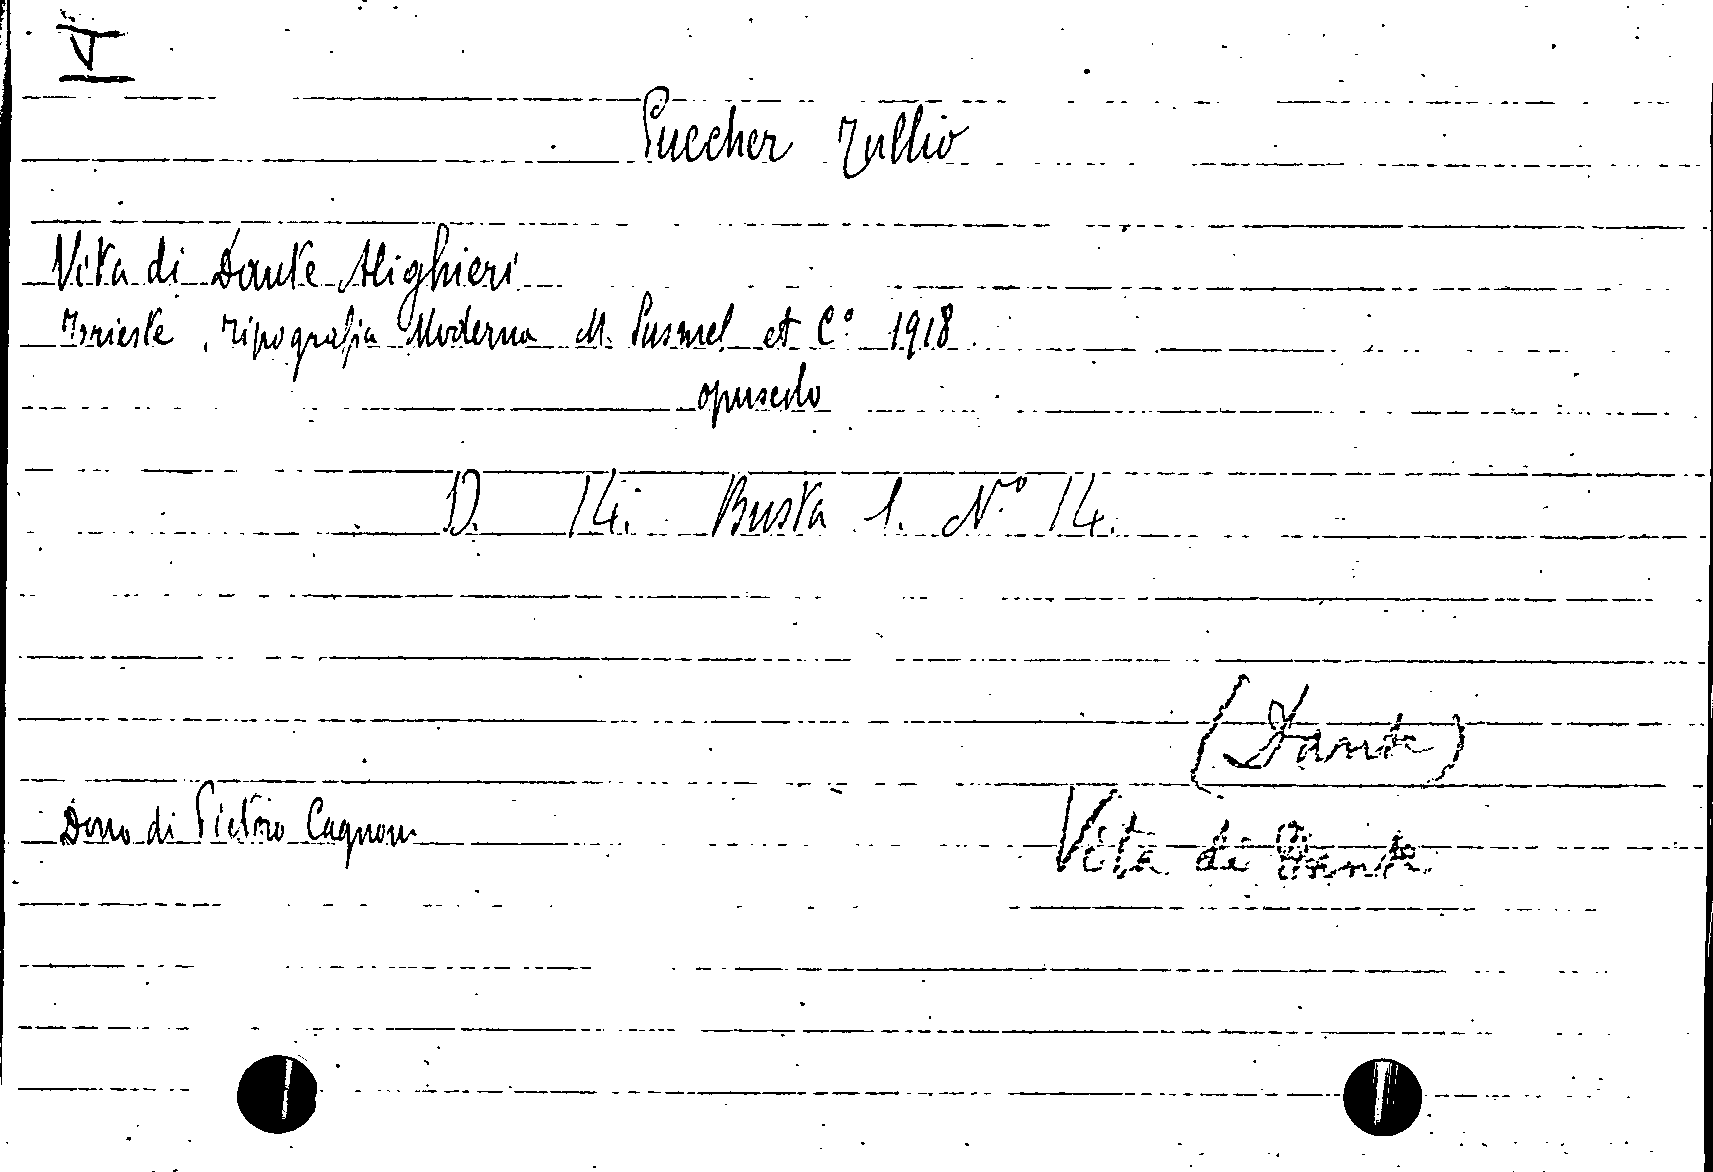 14
Puecher Tullio
Vita di Dante Alighieri
Trieste, Tipografia Moderna M. Susmel et C.º 1918.
opuscolo
D. 14. Busta 1. Nº 14.
(Dante)
Dono di Pietro Cagnoni
Vita di Dante